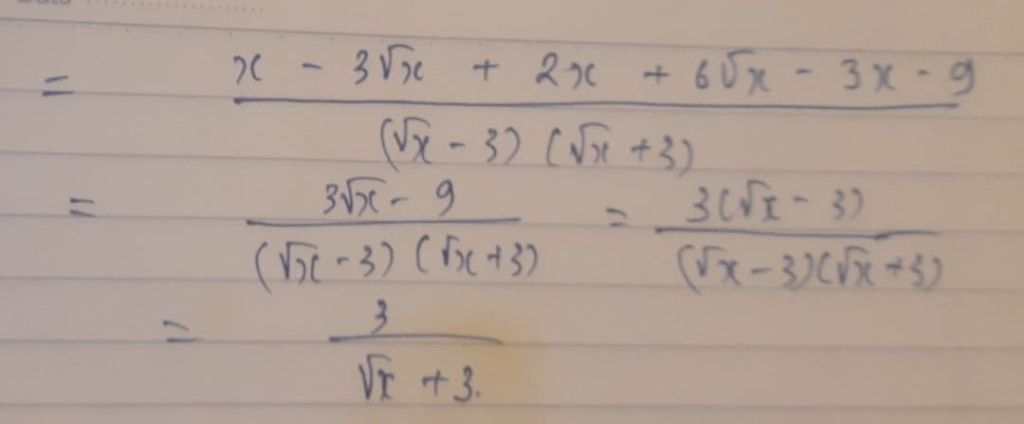 = (x - 3√x + 2x + 6√x - 3x - 9) / ((√x - 3) (√x + 3))
= (3√x - 9) / ((√x - 3) (√x + 3)) = 3(√x - 3) / ((√x - 3)(√x + 3))
= 3 / (√x + 3.)